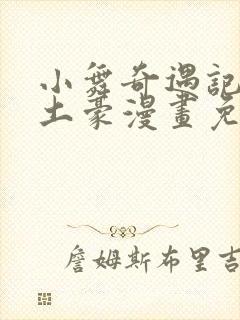 小舞奇遇記
土豪漫畫免
詹姆斯布里吉